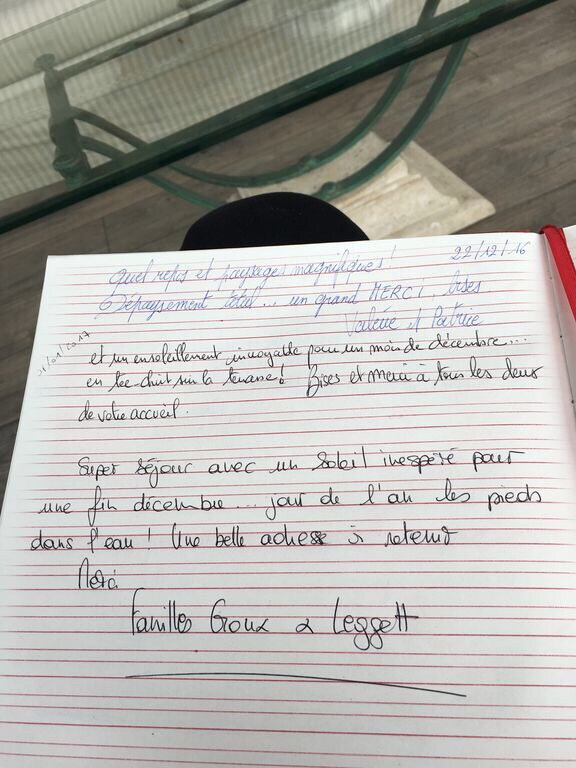 Quel repos et paysages magnifiques ! 22/12/16
Dépaysement total... un grand MERCI, bises
Valérie et Patrice
et un ensoleillement incroyable pour un mois de décembre...
en tee-shirt sur la terrasse ! Bises et merci à tous les deux
de votre accueil.
Super séjour avec un soleil inespéré pour
une fin décembre... jour de l'an les pieds
dans l'eau ! Une belle adresse à retenir
Merci
Familles Groux & Leggett